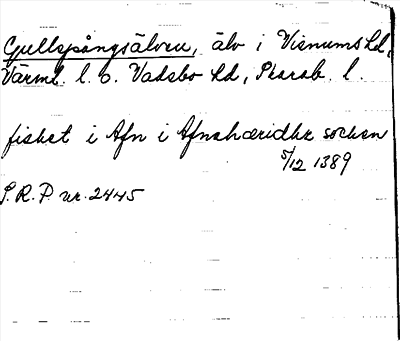 Gullspångsälven, älv i Visnums hd,
Värml. l. o. Vadsbo hd, Skarab. l.
fisket i Afn i Afnshæridhe socken
5/12 1389
S.R.P. nr. 2445